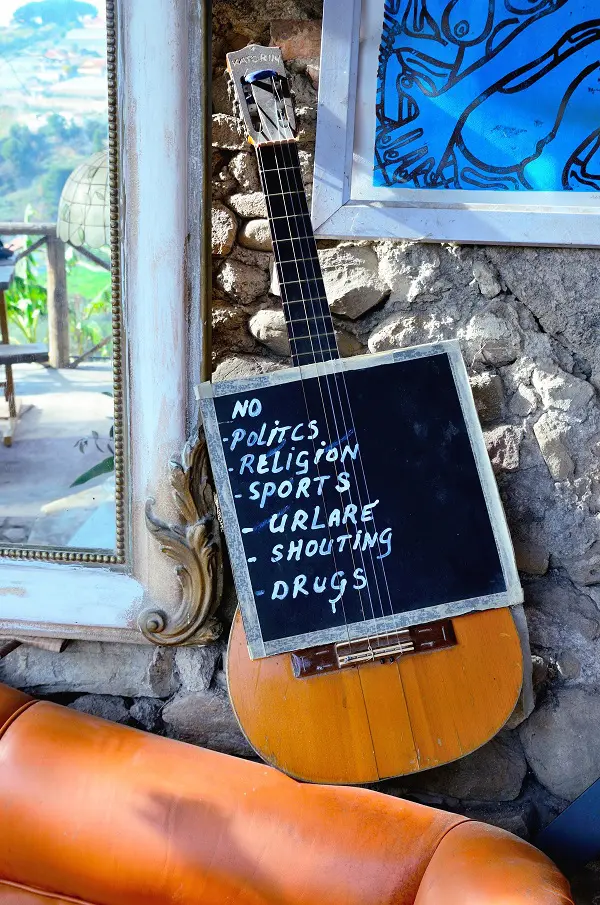 NO
-POLITCS
-RELIGION
-SPORTS
- URLARE
- SHOUTING
-DRUGS